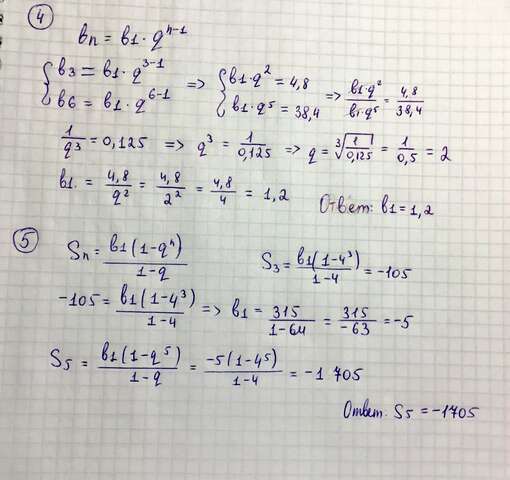 ④
вn = в1 · q^(n-1)
{ в3 = в1 · q^(3-1)
{ в6 = в1 · q^(6-1)
=> { в1 · q^2 = 4,8
{ в1 · q^5 = 38,4
=> (в1 · q^2)/(в1 · q^5) = 4,8/38,4
1/q^3 = 0,125 => q^3 = 1/0,125 => q = ∛(1/0,125) = 1/0,5 = 2
в1 = 4,8/q^2 = 4,8/2^2 = 4,8/4 = 1,2
Ответ: в1 = 1,2
⑤
Sn = в1(1-q^n)/(1-q)
S3 = в1(1-4^3)/(1-4) = -105
-105 = в1(1-4^3)/(1-4) => в1 = 315/(1-64) = 315/(-63) = -5
S5 = в1(1-q^5)/(1-q) = -5(1-4^5)/(1-4) = -1 705
Ответ: S5 = -1705